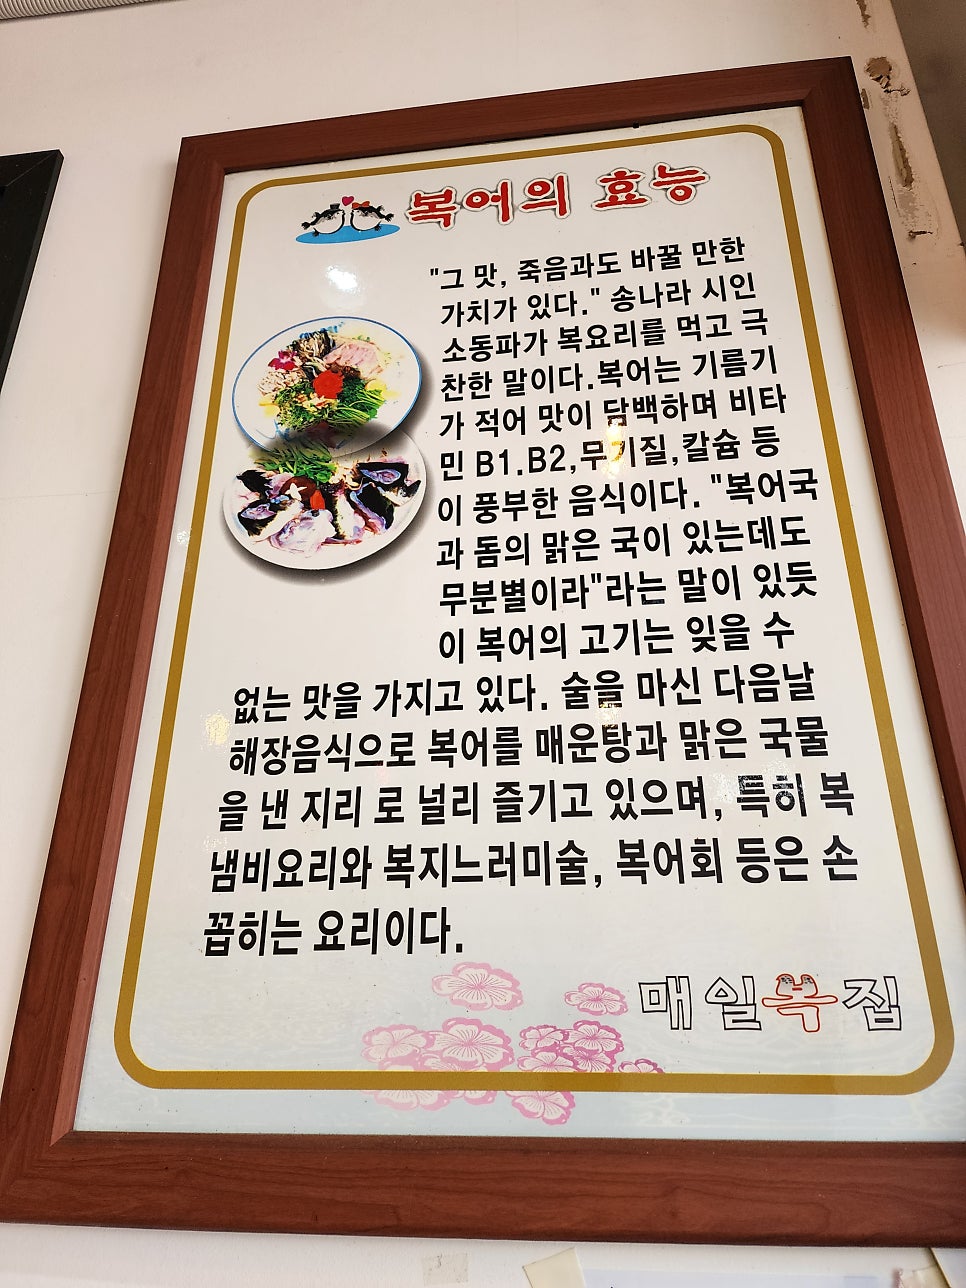 복어의 효능
"그 맛, 죽음과도 바꿀 만한
가치가 있다." 송나라 시인
소동파가 복요리를 먹고 극
찬한 말이다.복어는 기름기
가 적어 맛이 담백하며 비타
민 B1.B2,무기질,칼슘 등
이 풍부한 음식이다. "복어국
과 돔의 맑은 국이 있는데도
무분별이라"라는 말이 있듯
이 복어의 고기는 잊을 수
없는 맛을 가지고 있다. 술을 마신 다음날
해장음식으로 복어를 매운탕과 맑은 국물
을 낸 지리 로 널리 즐기고 있으며, 특히 복
냄비요리와 복지느러미술, 복어회 등은 손
꼽히는 요리이다.
매일복집